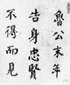 魯公末年
告身忠賢
不得而見